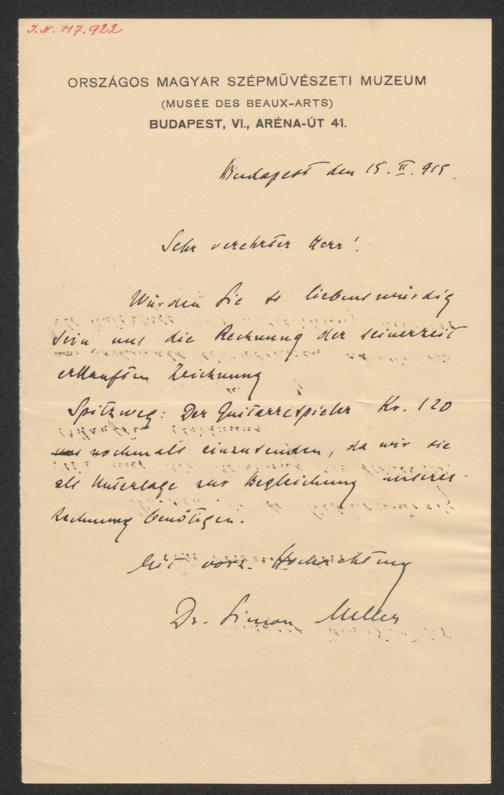 I.N. 117.922
ORSZÁGOS MAGYAR SZÉPMŰVÉSZETI MUZEUM
(MUSÉE DES BEAUX-ARTS)
BUDAPEST, VI., ARÉNA-ÚT 41.
Budapest den 15. II. 915.
Sehr verehrter Herr!
Würden Sie so liebenswürdig
sein uns die Rechnung der seinerzeit
erkauften Zeichnung
Spitzweg: Der Guitarrespieler Kr. 120
nochmals einzusenden, da wir sie
als Unterlage zur Begleichung unserer
Rechnung benötigen.
Mit vorz. Hochachtung
Dr. Simon Meller